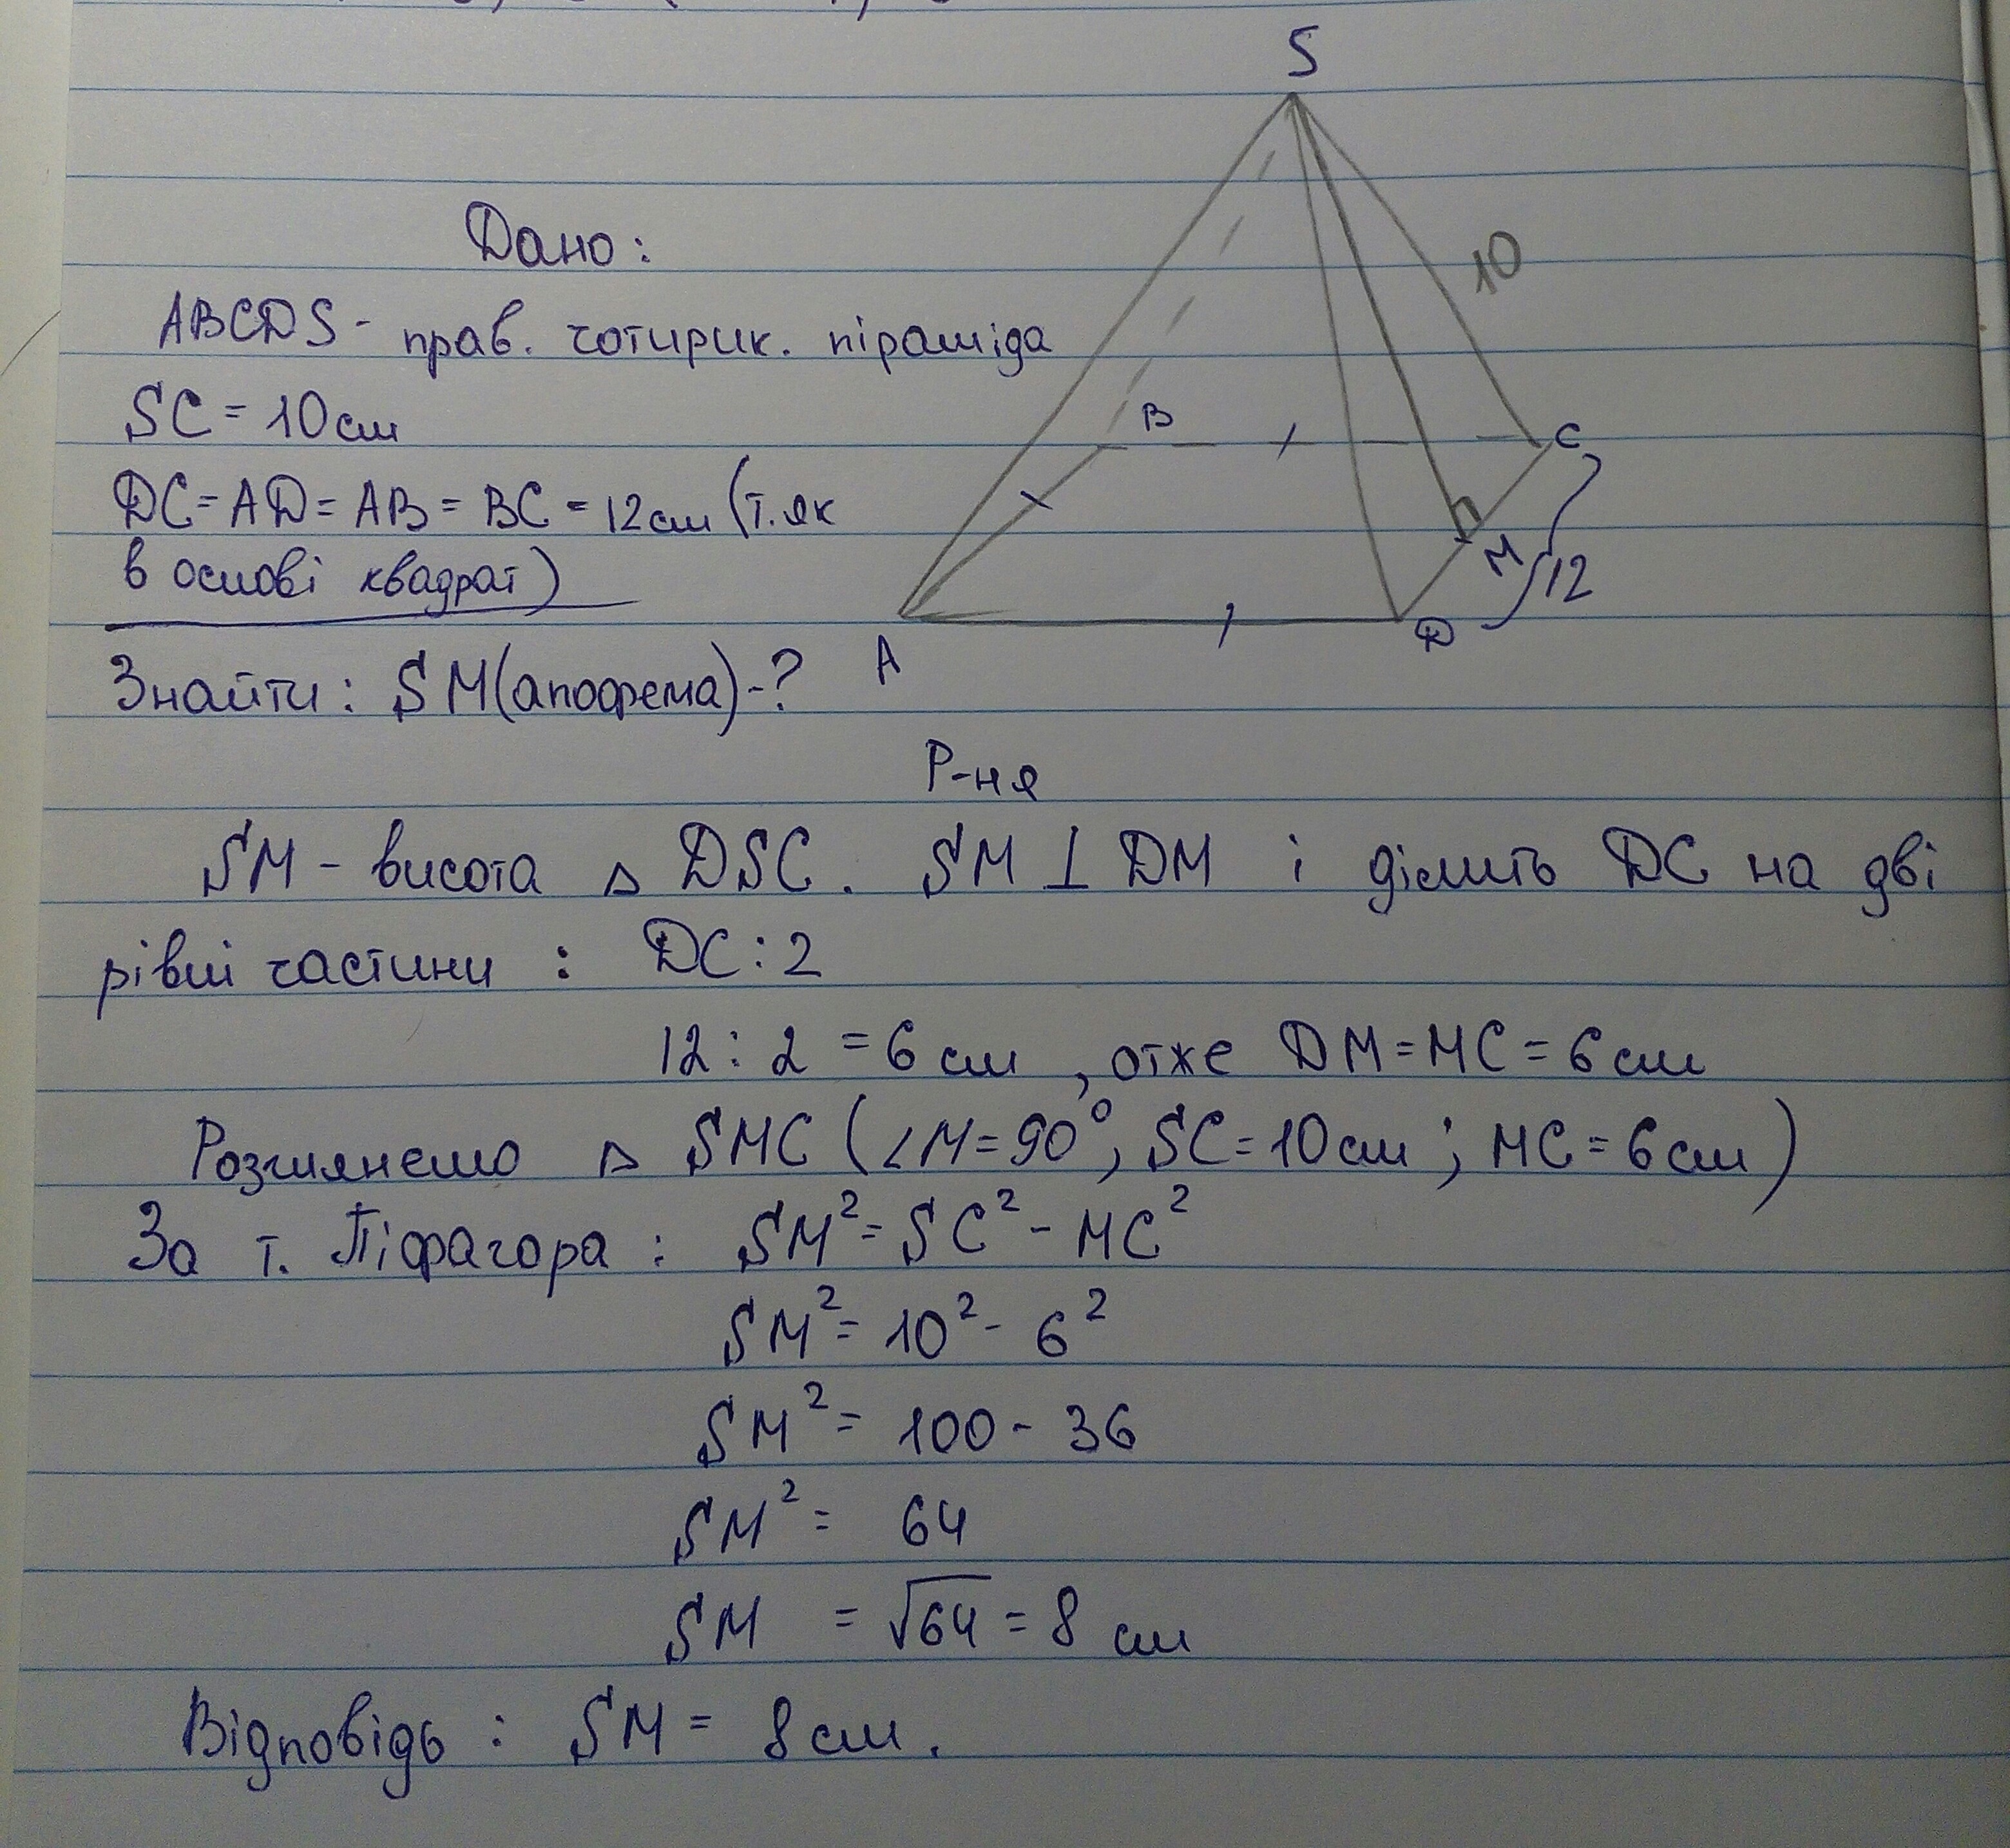 S
Дано:
ABCDS - прав. чотирик. піраміда
10
SC = 10 см
B
C
DC = AD = AB = BC = 12 см (т.як
в основі квадрат)
M
12
D
A
Знайти: SM (апофема) - ?
Р-ня
SM - висота △ DSC. SM ⊥ DM і ділить DC на дві
рівні частини : DC : 2
12 : 2 = 6 см , отже DM = MC = 6 см
Розглянемо △ SMC (∠M = 90°, SC = 10 см ; MC = 6 см)
За т. Піфагора : SM² = SC² - MC²
SM² = 10² - 6²
SM² = 100 - 36
SM² = 64
SM = √64 = 8 см
Відповідь : SM = 8 см.